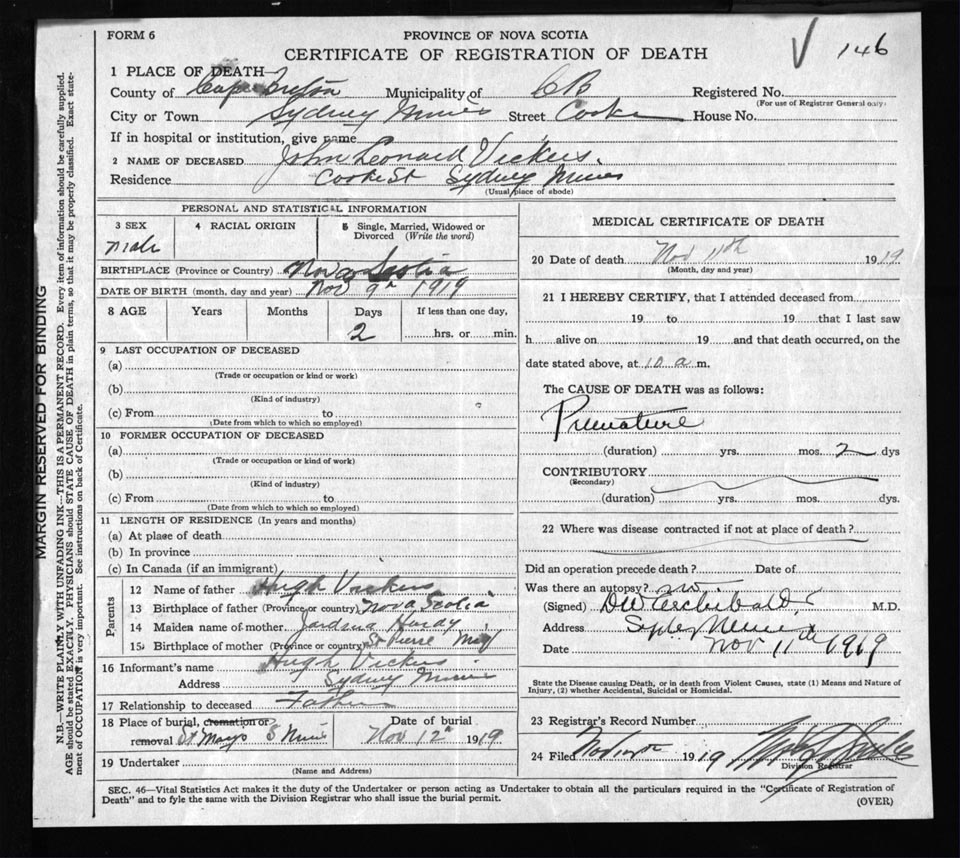 FORM 6
PROVINCE OF NOVA SCOTIA
CERTIFICATE OF REGISTRATION OF DEATH
146
1 PLACE OF DEATH
County of Cape Breton Municipality of CB Registered No.
(For use of Registrar General only)
City or Town Sydney Mines Street Cooke House No.
If in hospital or institution, give name
2 NAME OF DECEASED John Leonard Vickers.
Residence Cooke St Sydney Mines
(Usual place of abode)
PERSONAL AND STATISTICAL INFORMATION
3 SEX 4 RACIAL ORIGIN 5 Single, Married, Widowed or
Divorced (Write the word)
Male
BIRTHPLACE (Province or Country) Nova Scotia
DATE OF BIRTH (month, day and year) Nov 9th 1919
8 AGE Years Months Days If less than one day,
2 hrs. or min.
9 LAST OCCUPATION OF DECEASED
(a)
(Trade or occupation or kind or work)
(b)
(Kind of industry)
(c) From to
(Date from which to which so employed)
10 FORMER OCCUPATION OF DECEASED
(a)
(Trade or occupation or kind of work)
(b)
(Kind of industry)
(c) From to
(Date from which to which so employed)
11 LENGTH OF RESIDENCE (In years and months)
(a) At place of death
(b) In province
(c) In Canada (if an immigrant)
Parents
12 Name of father Hugh Vickers
13 Birthplace of father (Province or country) Nova Scotia
14 Maiden name of mother Hardy
15 Birthplace of mother (Province or country) St Pierre Miq
16 Informant's name Hugh Vickers
Address Sydney Mines
17 Relationship to deceased Father
18 Place of burial, cremation or Date of burial
removal St Marys S Mines Nov 12th 1919
19 Undertaker
(Name and Address)
MEDICAL CERTIFICATE OF DEATH
20 Date of death Nov 11th 1919
(Month, day and year)
21 I HEREBY CERTIFY, that I attended deceased from
19 to 19 that I last saw
h alive on 19 and that death occurred, on the
date stated above, at 10 a m.
The CAUSE OF DEATH was as follows:
Premature
(duration) yrs. mos. 2 dys
CONTRIBUTORY
(Secondary)
(duration) yrs. mos. dys.
22 Where was disease contracted if not at place of death?
Did an operation precede death? Date of
Was there an autopsy? no.
(Signed) DW Archibald M.D.
Address Mines
Date Nov 11th 1919
State the Disease causing Death, or in death from Violent Causes, state (1) Means and Nature of
Injury, (2) whether Accidental, Suicidal or Homicidal.
23 Registrar's Record Number
24 Filed Nov 1919
Division Registrar
SEC. 46—Vital Statistics Act makes it the duty of the Undertaker or person acting as Undertaker to obtain all the particulars required in the "Certificate of Registration of
Death" and to fyle the same with the Division Registrar who shall issue the burial permit.
(OVER)
MARGIN RESERVED FOR BINDING
N.B.—WRITE PLAINLY WITH UNFADING INK—THIS IS A PERMANENT RECORD. Every item of information should be carefully supplied.
AGE should be stated EXACTLY. PHYSICIANS should STATE CAUSE OF DEATH in plain terms, so that it may be properly classified. Exact state-
ment of OCCUPATION is very important. See instructions on back of Certificate.